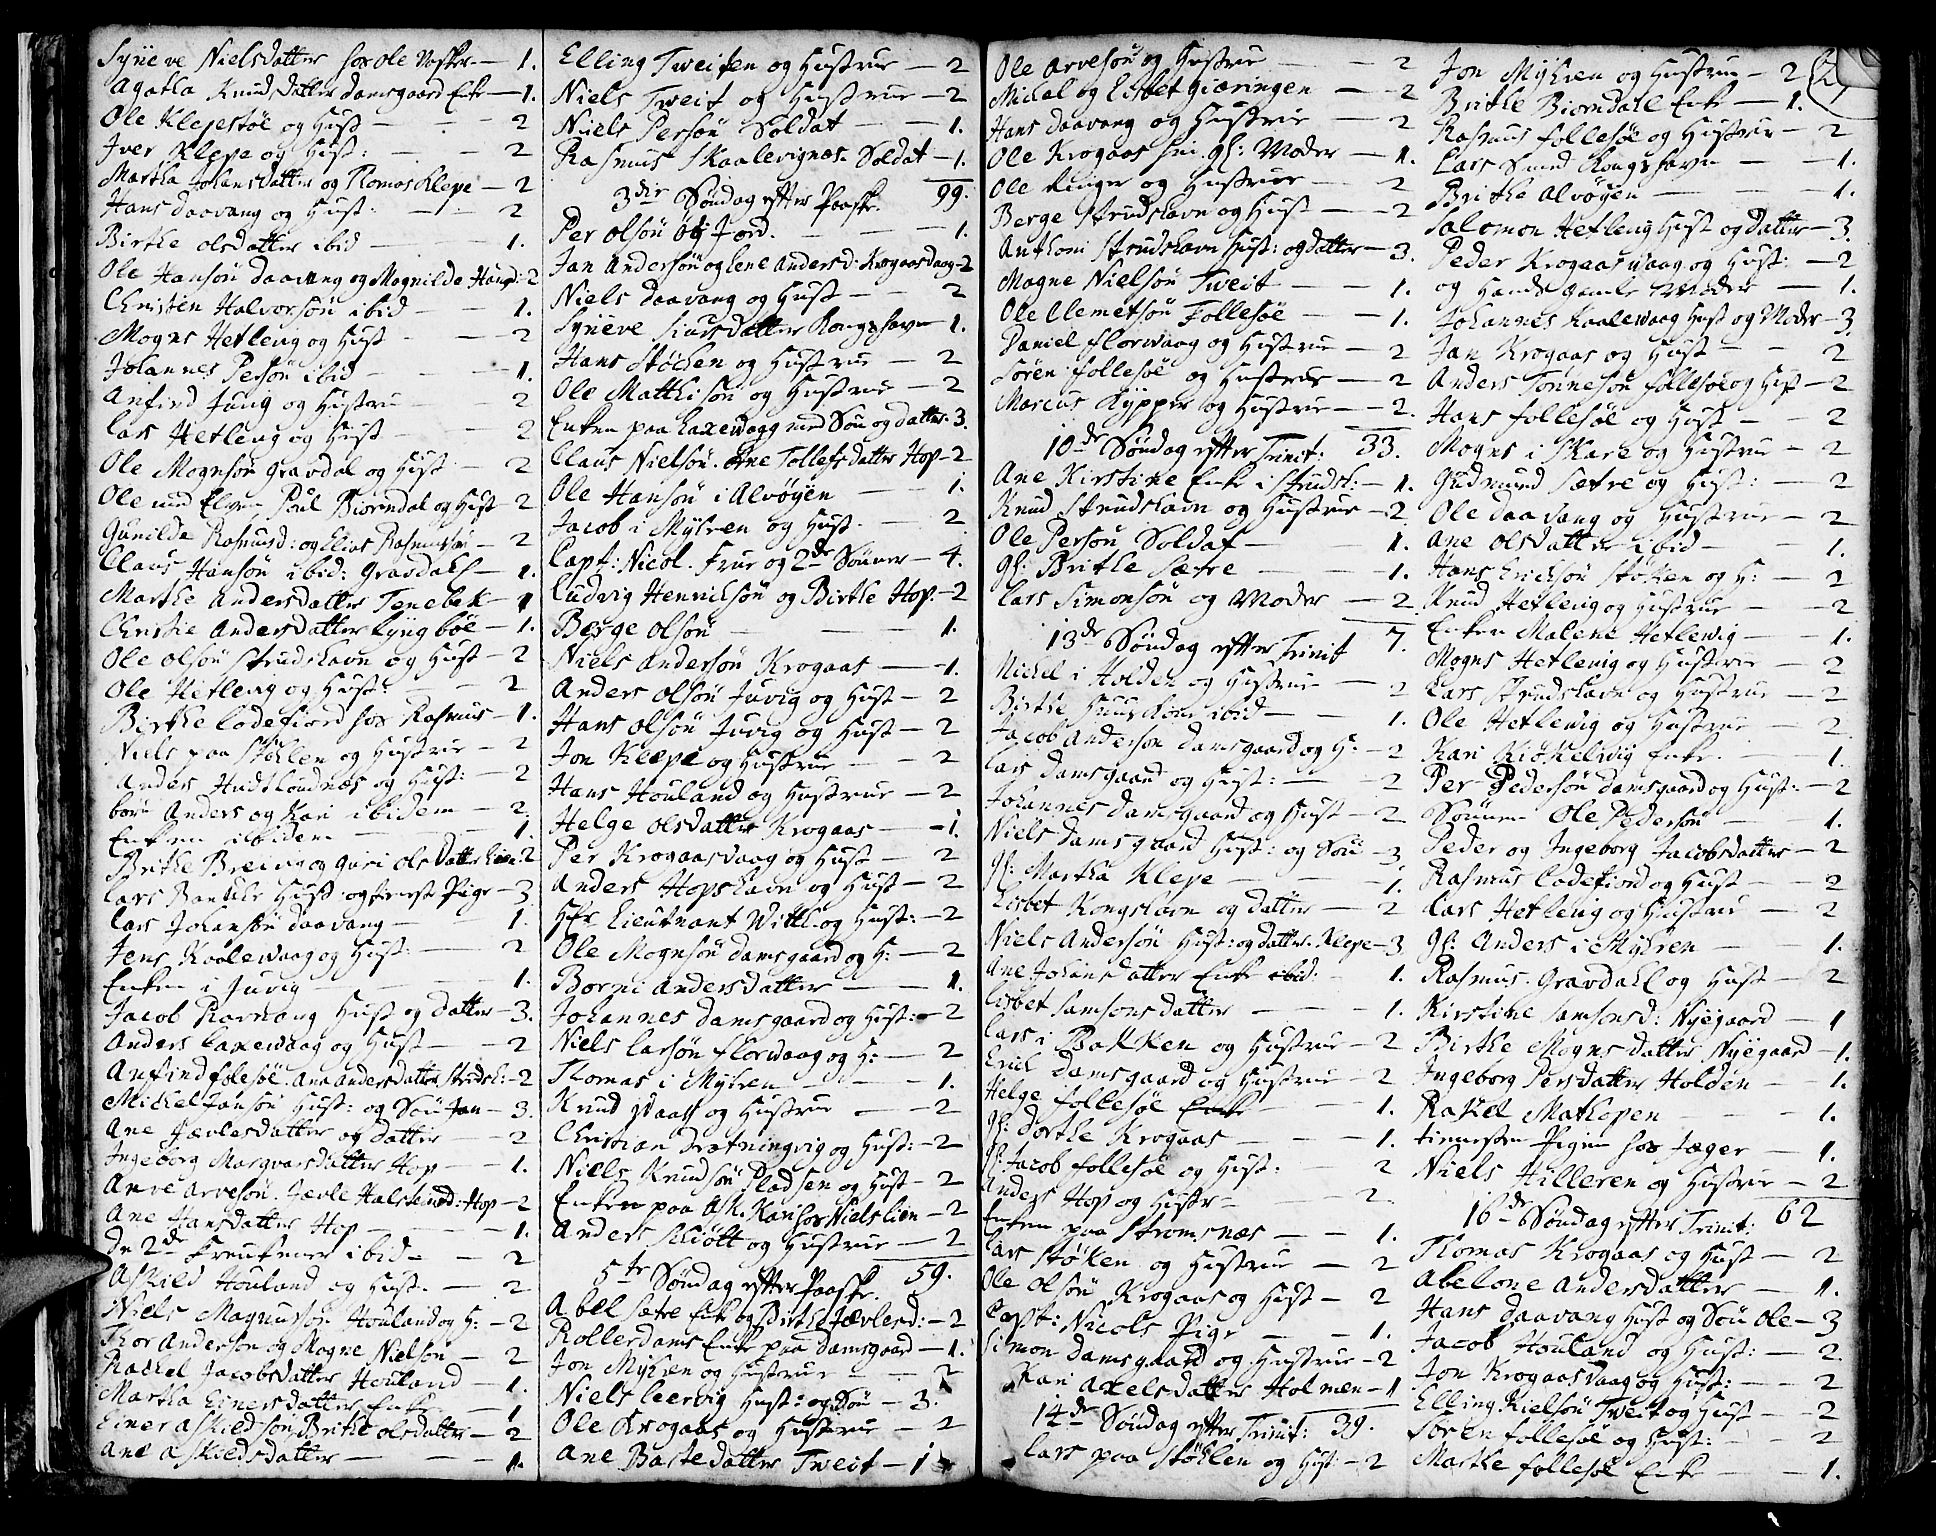 Syneve Nielsdatter hos Ole Vosker — 1.
Agatha Knudsdatter Damsgaard Enke — 1.
Ole Klepestøe og Hust — 2
Iver Klepe og Hust: — 2
Martha Johansdatter og Thomas Klepe — 2
Hans Daavang og Hust: — 2
Birthe Olsdatter ibid — 1.
Ole Hansøn Daavang og Magnilde Hansd: 2
Christen Halvorsøn ibid — 1.
Mogns Hetlevig og Hust — 2
Johannes Persøn ibid — 1.
Anfind Juvig og Hustru — 2
Lars Hetlevig og Hust — 2
Ole Mognsøn Gravdal og Hust — 2
Ole Poul Biørndal og Hust — 2
Gunilde Rasmusd: og Elias Rasmussøn — 2
Claus Hansøn ibid: Gravdahl — 1.
Marthe Andersdatter Tenebek — 1
Christie Andersdatter Lyngbøe — 1.
Ole Olsøn Strudshavn og Hust — 2
Ole Hetlevig og Hust: — 2
Birthe Lodefiord hos Rasmus — 1.
Niels paa Støhlen og Hustrue — 2
Anders Hudtloudnæs og Hust: — 2
Anders og Kari ibidem — 2.
Enken ibidem — 1.
Brithe Breivig og Guri Olsdatter Lien: 2
Lars Bankle Hust og Pige — 3
Lars Johansøn Daavang — 1.
Jens Kaalevaag og Hust: — 2
Enken i Juvig — 1.
Jacob Ravnang Hust og Datter — 3.
Anders Laxevaag og Hust — 2
Anfind Folesøe. Ane Andersdatter Strudsh: — 2
Michel Jansøn Hust: og Søn Jan — 3.
Ane Jævlesdatter og Datter — 2
Ingeborg Marqvarsdatter Hop — 1.
Arve Arvesøn. Jævle Halstensd: Hop — 2
Ane Hansdatter Hop — 1.
De 2de ibid — 2
Askild Houland og Hust. — 2
Niels Magnussøn Houland og H: — 2
Thor Andersøn og Magne Nielsøn — 2
Rachel Jacobsdatter Houland — 1.
Martha Einersdatter Enke — 1
Einer Askildsøn Brithe Olsdatter — 2
Ane Askildsdatter — 1.
Elling Tweiten og Hustrue — 2
Niels Tweit og Hustrue — 2
Niels Persøn Soldat — 1.
Rasmus Skaalevignæs. Soldat — 1.
3die Søndag efter Paaske. 99.
Per Olsøn Øfj Jord. — 1.
Jan Andersøn og Lene Andersd: Krogaasvaag — 2
Niels Daavang og Hust — 2
Syneve Siursdatter Kongshavn — 1.
Hans Støhlen og Hustrue — 2
Ole Matthisøn og Hustrue — 2
Enken paa Laxevaag med Søn og Datter. 3.
Claus Nielsøn. Ane Tollefsdatter Hop — 2
Ole Hansøn i Alvøyen — 1.
Jacob i Myhren og Hust. — 2
Capt: Nicol. Frue og 2de Sønner — 4.
Ludvig Henrichsøn og Birthe Hop. — 2
Berge Olsøn — 1.
Niels Andersøn Krogaas — 1.
Anders Olsøn Juvig og Hust — 2
Hans Olsøn Juvig og Hust — 2
Jon Klepe og Hustrue — 2
Hans Houland og Hustrue — 2
Helge Olsdatter Krogaas — 1.
Per Krogaasvaag og Hust — 2
Anders Hopshavn og Hust — 2
Hr Lieutnant Will. og Hust: — 2
Ole Mognsøn Damsgaard og H: — 2
Borni Andersdatter — 1.
Johannes Damsgaard og Hust: — 2
Niels Larsøn Florvaag og H: — 2
Thomas i Myhren — 1.
Knud Vaage og Hustrue — 2
Christian Drætningvig og Hust: — 2
Niels Knudsøn Pladsen og Hust — 2
Enken paa Ask. Kari hos Niels Lien — 2
Anders Schiött og Hustrue — 2
5te Søndag efter Paaske. 59.
Abel Sætre Enke og Birthe Jævlesd: — 2
Rollerdams Enke paa Damsgaard — 1.
Jon Myhren og Hustrue — 2
Niels Leervig Hust: og Søn — 3.
Ole Krogaas og Hustrue — 2
Ane Bastedatter Tweit — 1
Ole Arvesøn og Hustrue — 2
Michel og Lisbet Giæringen — 2
Hans Daavang og Hustrue — 2
Ole Krogaas hni gl: Moder — 1.
Ole Ringer og Hustrue — 2
Berge Strudshavn og Hust — 2
Anthoni Strudshavn Hust: og Datter — 3.
Magne Nielsøn Tweit — 1.
Ole Clemetsøn Follesøe — 1.
Daniel Florvaag og Hustrue — 2
Søren i Follesøe og Hustrue — 2
Marcus Kypper og Hustrue — 2.
10de Søndag efter Trinit: 33.
Ane Kirstine Enke i Strudsh: — 1.
Knud Strudshavn og Hustrue — 2
Ole Persøn Soldat — 1.
gl: Brithe Sætre — 1.
Lars Simonsøn og Moder — 2
13de Søndag efter Trinit 7.
Michel i Holden og Hustrue — 2
Birthe ibid — 1.
Jacob Andersøn Damsgaard og H: — 2
Lars Damsgaard og Hust: — 2
Johannes Damsgaard og Hust — 2
Niels Damsgaard Hust: og Søn — 3
gl: Martha Klepe — 1.
Lisbet Kongshavn og Datter — 2
Niels Andersøn Hust: og Datter. Klepe — 3
Ane Johansdatter Enke ibid: — 1.
Lisbet Samsonsdatter — 1.
Lars i Bakken og Hustrue — 2
Erich Damsgaard og Hustrue — 2
Helge Follesøe Enke — 1.
gl: Dorthe Krogaas — 1.
gl: Jacob Follesøe og Hust: — 2
Anders Hop og Hustr — 2
Enken paa Strømsnæs — 1.
Lars Støhlen og Hustrue — 2
Ole Olsøn Krogaas og Hust — 2
Capt: Nicols Pige — 1.
Simon Damsgaard og Hustrue — 2
Kari Axelsdatter Holmæn — 1
14de Søndag efter Trinit: 39.
Lars paa Støhlen og Hust: — 2
Jon Myhren og Hustrue — 2
Brithe Biørndahl Enke — 1.
Rasmus Follesøe og Hustrue — 2
Lars Smed Kongshavn — 1.
Brithe Alvøyen — 1.
Salomon Hetlevig Hust og Datter — 3.
Peder Krogaasvaag og Hust: — 2
og Hands gamle Moder — 1.
Johannes Kaalevaag Hust og Moder — 3
Jan Krogaas og Hust — 2
Anders Tønnesøn Follesøe og Hust — 2
Hans Follesøe og Hust — 2
Mogns i Skare og Hustrue — 2
Gudmund Sætre og Hust: — 2
Ole Daavang og Hustrue — 2
Ane Olsdatter ibid — 1.
Hans Erichsøn Støhlen og H: — 2
Knud Hetlevig og Hustrue — 2
Enken Malene Hetlewig — 1.
Mogns Hetlevig og Hustrue — 2
Lars Strudshavn og Hustrue — 2
Ole Hetlevig og Hustrue — 2
Kari Kiøkelvig Enke. — 1.
Per Pedersøn Damsgaard og Hust: — 2
Sønnen Ole Pedersøn — 1.
Peder og Ingeborg Jacobsdatter — 2
Rasmus Lodefiord og Hust — 2
Lars Hetlevig og Hustrue — 2
gl: Anders i Myhren — 1.
Rasmus. Gravdahl og Hust — 2
Kirstine Samsonsd: Nyegaard — 1
Birthe Mognsdatter Nyegaard — 1.
Ingeborg Persdatter Holden — 1.
Rakel Mathopen — 1.
Pigen hos Jæger — 1.
Niels Hilleren og Hustrue — 2
16de Søndag efter Trinit: 62
Thomas Krogaas og Hust — 2
Abelone Andersdatter — 1.
Hans Daavang Hust og Søn Ole — 3
Jacob Houland og Hust: — 2.
Jon Krogaasvaag og Hust: — 2
Elling Nielsøn Tweit og Hust — 2
Søren Follesøe og Hust: — 2
Marthe Follesøe Enke — 1.